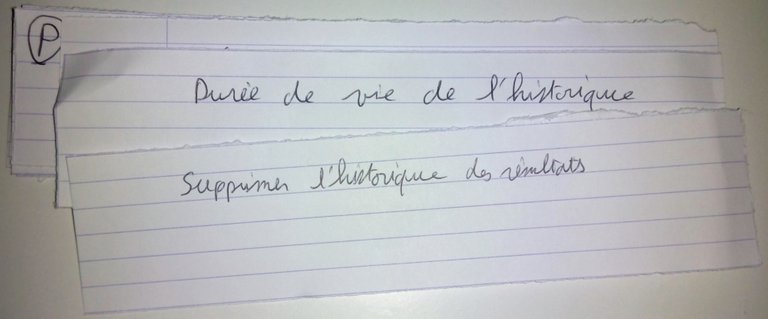 P
Durée de vie de l'historique
Supprimer l'historique des résultats